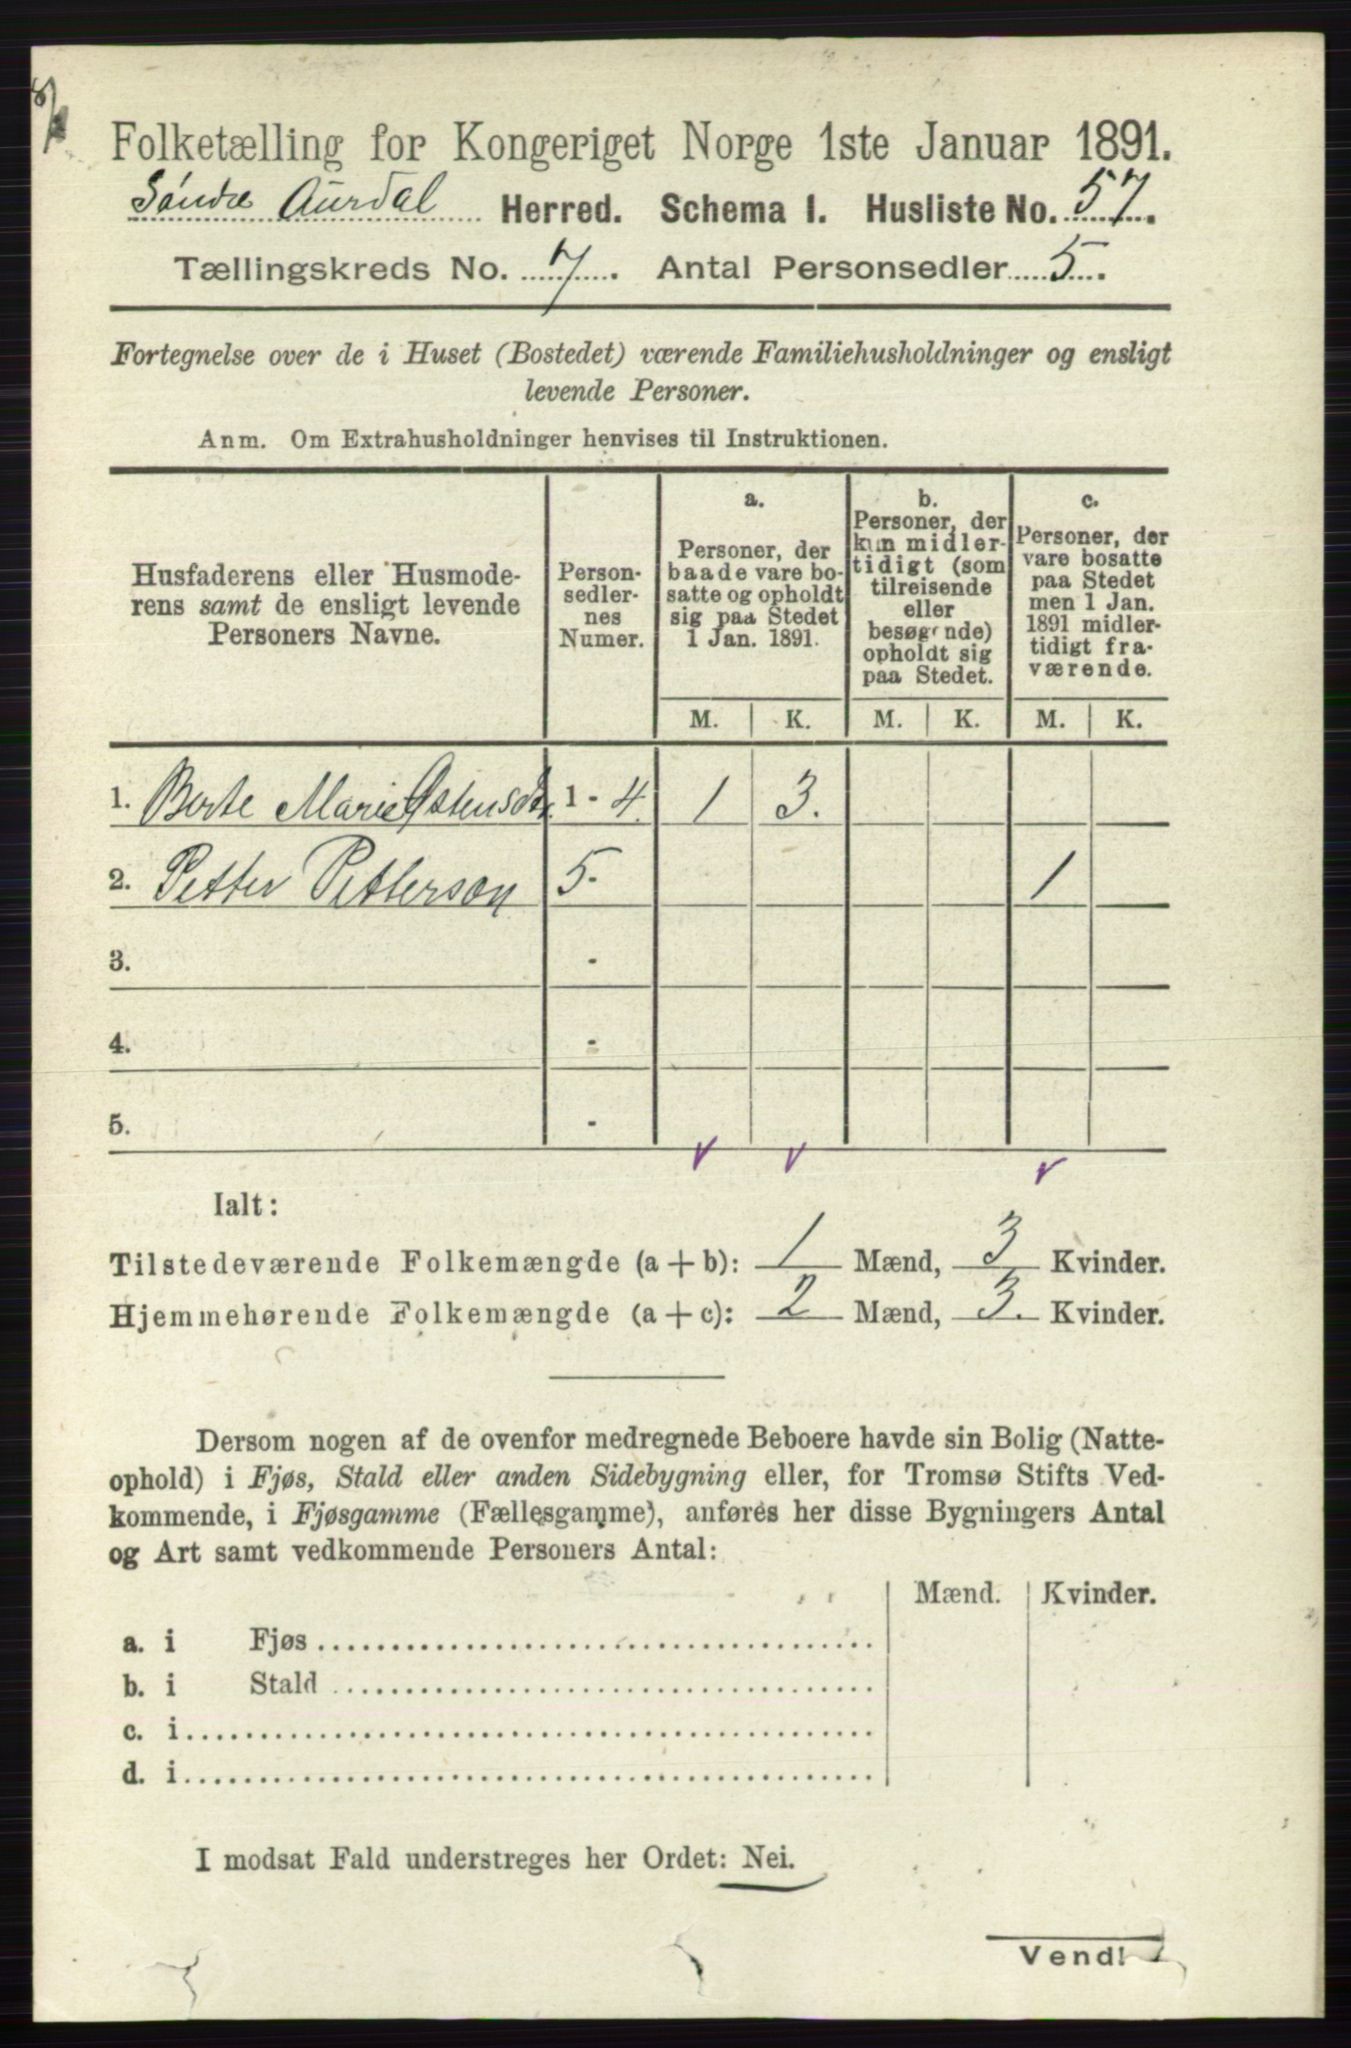 Folketælling for Kongeriget Norge 1ste Januar 1891.
Søndre Aurdal Herred. Schema I. Husliste No. 57.
Tællingskreds No. 7. Antal Personsedler 5.
Fortegnelse over de i Huset (Bostedet) værende Familiehusholdninger og ensligt
levende Personer.
Anm. Om Extrahusholdninger henvises til Instruktionen.
Husfaderens eller Husmode-
rens samt de ensligt levende
Personers Navne.
Person-
sedler-
nes
Numer.
a.
Personer, der
baade vare bo-
satte og opholdt
sig paa Stedet
1 Jan. 1891.
b.
Personer, der
kun midler-
tidigt (som
tilreisende
eller
besøgende)
opholdt sig
paa Stedet.
c.
Personer, der
vare bosatte
paa Stedet
men 1 Jan.
1891 midler-
tidigt fra-
værende.
M. K. M. K. M. K.
1. Berte Marie Ostensdtr. 1 - 4. 1 3.
2. Petter Petterson 5- 1
3. -
4. -
5. -
Ialt:
Tilstedeværende Folkemængde (a + b): 1 Mænd, 3 Kvinder.
Hjemmehørende Folkemængde (a + c): 2 Mænd, 3. Kvinder.
Dersom nogen af de ovenfor medregnede Beboere havde sin Bolig (Natte-
ophold) i Fjøs, Stald eller anden Sidebygning eller, for Tromsø Stifts Ved-
kommende, i Fjøsgamme (Fællesgamme), anføres her disse Bygningers Antal
og Art samt vedkommende Personers Antal:
Mænd. Kvinder.
a. i Fjøs
b. i Stald
c. i
d. i
I modsat Fald understreges her Ordet: Nei.
Vend!